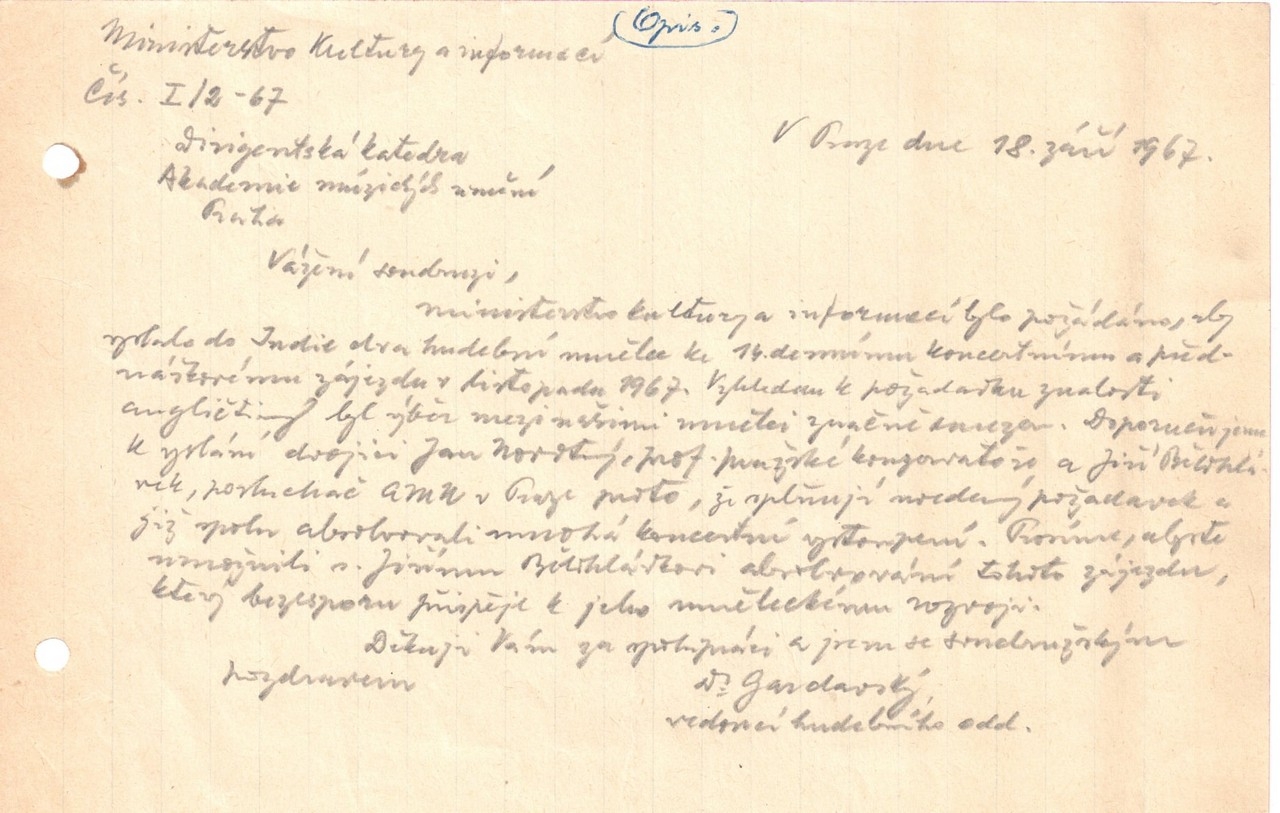 (Opis.)
Ministerstvo Kultury a informací
Čís. I/2-67
V Praze dne 18. září 1967.
Dirigentská katedra
Akademie múzických umění
Praha
Vážení soudruzi,
ministerstvo kultury a informací bylo požádáno, aby
vyslalo do Indie dva hudební umělce ke 14.dennímu koncertnímu a před-
náškovému zájezdu v listopadu 1967. Vzhledem k požadavku znalosti
angličtiny byl výběr mezi našimi umělci značně omezen. Doporučujeme
k vyslání dvojici Jan Novotný, prof. pražské konzervatoře a Jiří Bělohlá-
vek, posluchač AMU v Praze proto, že splňují uvedený požadavek a
již spolu absolvovali mnohá koncertní vystoupení. Prosíme, abyste
umožnili s. Jiřímu Bělohlávkovi absolvování tohoto zájezdu,
který bezesporu přispěje k jeho uměleckému rozvoji.
Děkuji Vám za spolupráci a jsem se soudružským
pozdravem
Dr Gardavský,
vedoucí hudebního odd.